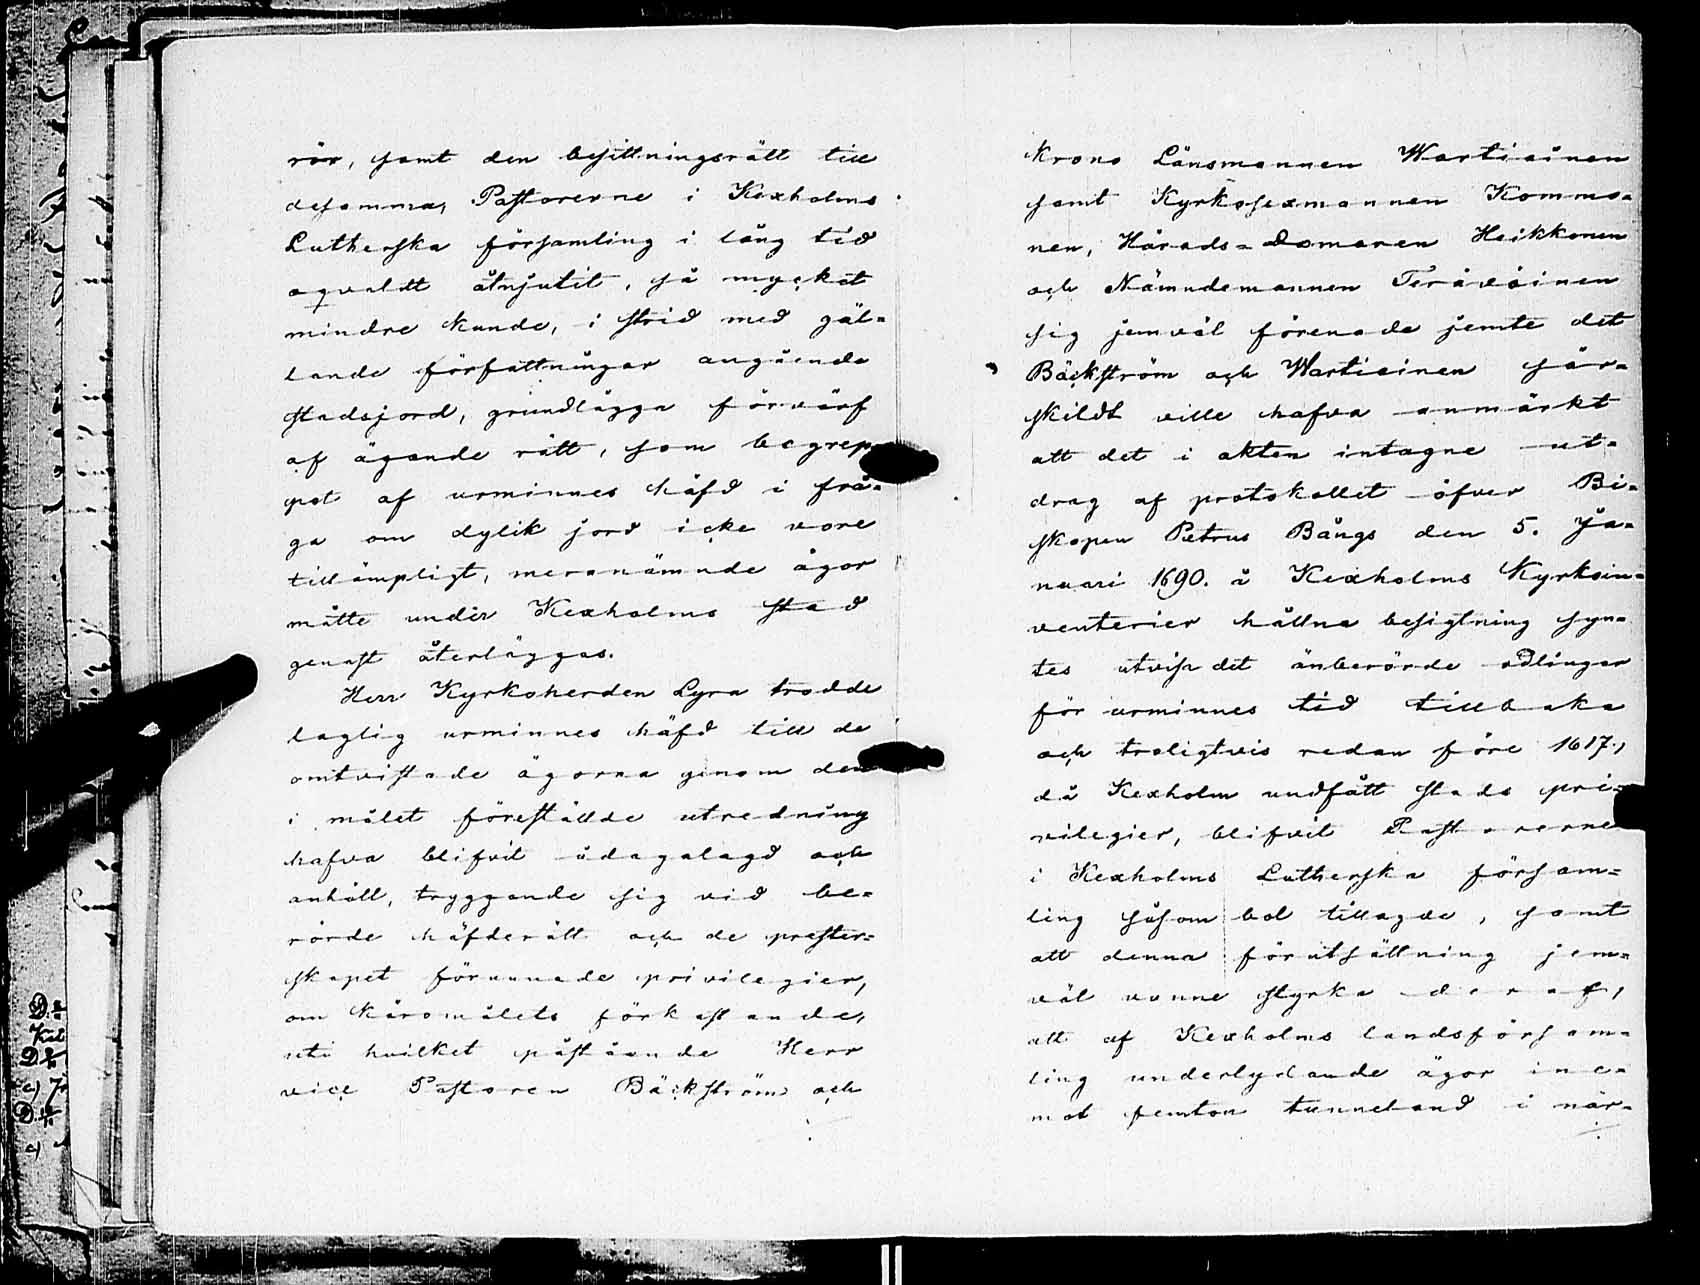 rör, samt den besittningsrätt till
desamma, Pastorerne i Kexholms
Lutherska församling i lång tid
oqvaldt åtnjutit, så mycket
mindre kunde, i strid med gäl-
lande författningar angående
stadsjord, grundlägga förvärf
af ägande rätt, som begrep-
pet af urminnes häfd i frå-
ga om dylik jord icke vore
tillämpligt, meranämnde ägor
måtte under Kexholms stad
genast återläggas.
Herr Kyrkoherden Lyra trodde
laglig urminnes häfd till de
omtvistade ägorna genom den
i målet förestälde utredning
hafva blifvit ådagalagd och
anhöll, tryggande sig vid be-
rörde häfderätt och de prester-
skapet förunnade privilegier,
om käromålets förkastande,
uti hvilket påstående Herr
vice Pastoren Bäckström och
Krono Länsmannen Wartiainen
samt Kyrkosexmannen Kommo-
nen, Härads-Domaren Heikkonen
och Nämndemannen Teräväinen
sig jemväl förenade jemte det
Bäckström och Wartiainen sär-
skildt ville hafva anmärkt
att det i akten intagne ut-
drag af protokollet öfver Bi-
skopen Petrus Bångs den 5. Ja-
nuari 1690. å Kexholms Kyrkoin-
venterier hållna besigtning syn-
tes utvisa det änberörde odlingar
för urminnes tid tillbaka
och troligtvis redan före 1617.,
då Kexholm undfått stads pri-
vilegier, blifvit Pastorerne
i Kexholms Lutherska försam-
ling såsom bol tillagde, samt
att denna förutsättning jem-
väl vunne styrka deraf,
att af Kexholms landsförsam-
ling underlydande ägor ine-
mot femton tunneland i när-